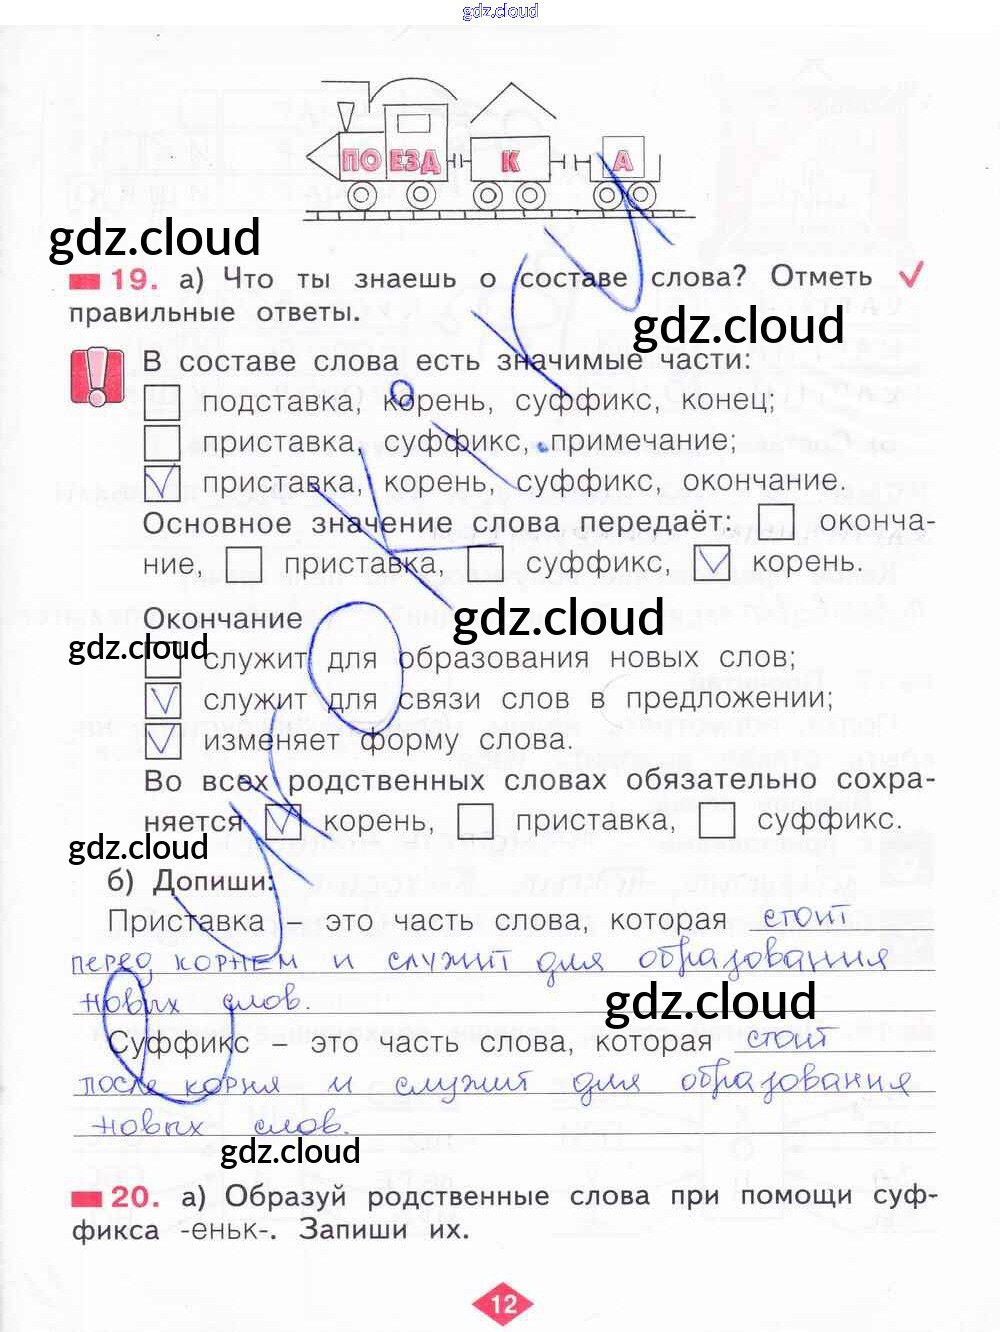 gdz.cloud
ПО ЕЗД К А
gdz.cloud
19. а) Что ты знаешь о составе слова? Отметь
правильные ответы.
gdz.cloud
В составе слова есть значимые части:
подставка, корень, суффикс, конец;
приставка, суффикс, примечание;
приставка, корень, суффикс, окончание.
Основное значение слова передаёт: оконча-
ние, приставка, суффикс, корень.
Окончание
gdz.cloud
gdz.cloud
служит для образования новых слов;
служит для связи слов в предложении;
изменяет форму слова.
Во всех родственных словах обязательно сохра-
няется корень, приставка, суффикс.
gdz.cloud
б) Допиши:
Приставка – это часть слова, которая стоит
перед корнем и служит для образования
новых слов.
gdz.cloud
Суффикс – это часть слова, которая стоит
после корня и служит для образования
новых слов.
gdz.cloud
20. а) Образуй родственные слова при помощи суф-
фикса -еньк-. Запиши их.
12